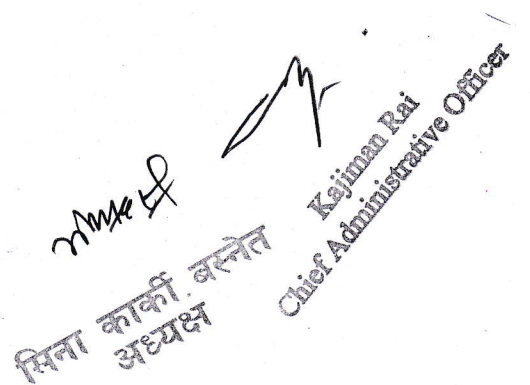 सिना कार्की बस्नेत
अध्यक्ष
Kajiman Rai
Chief Administrative Officer